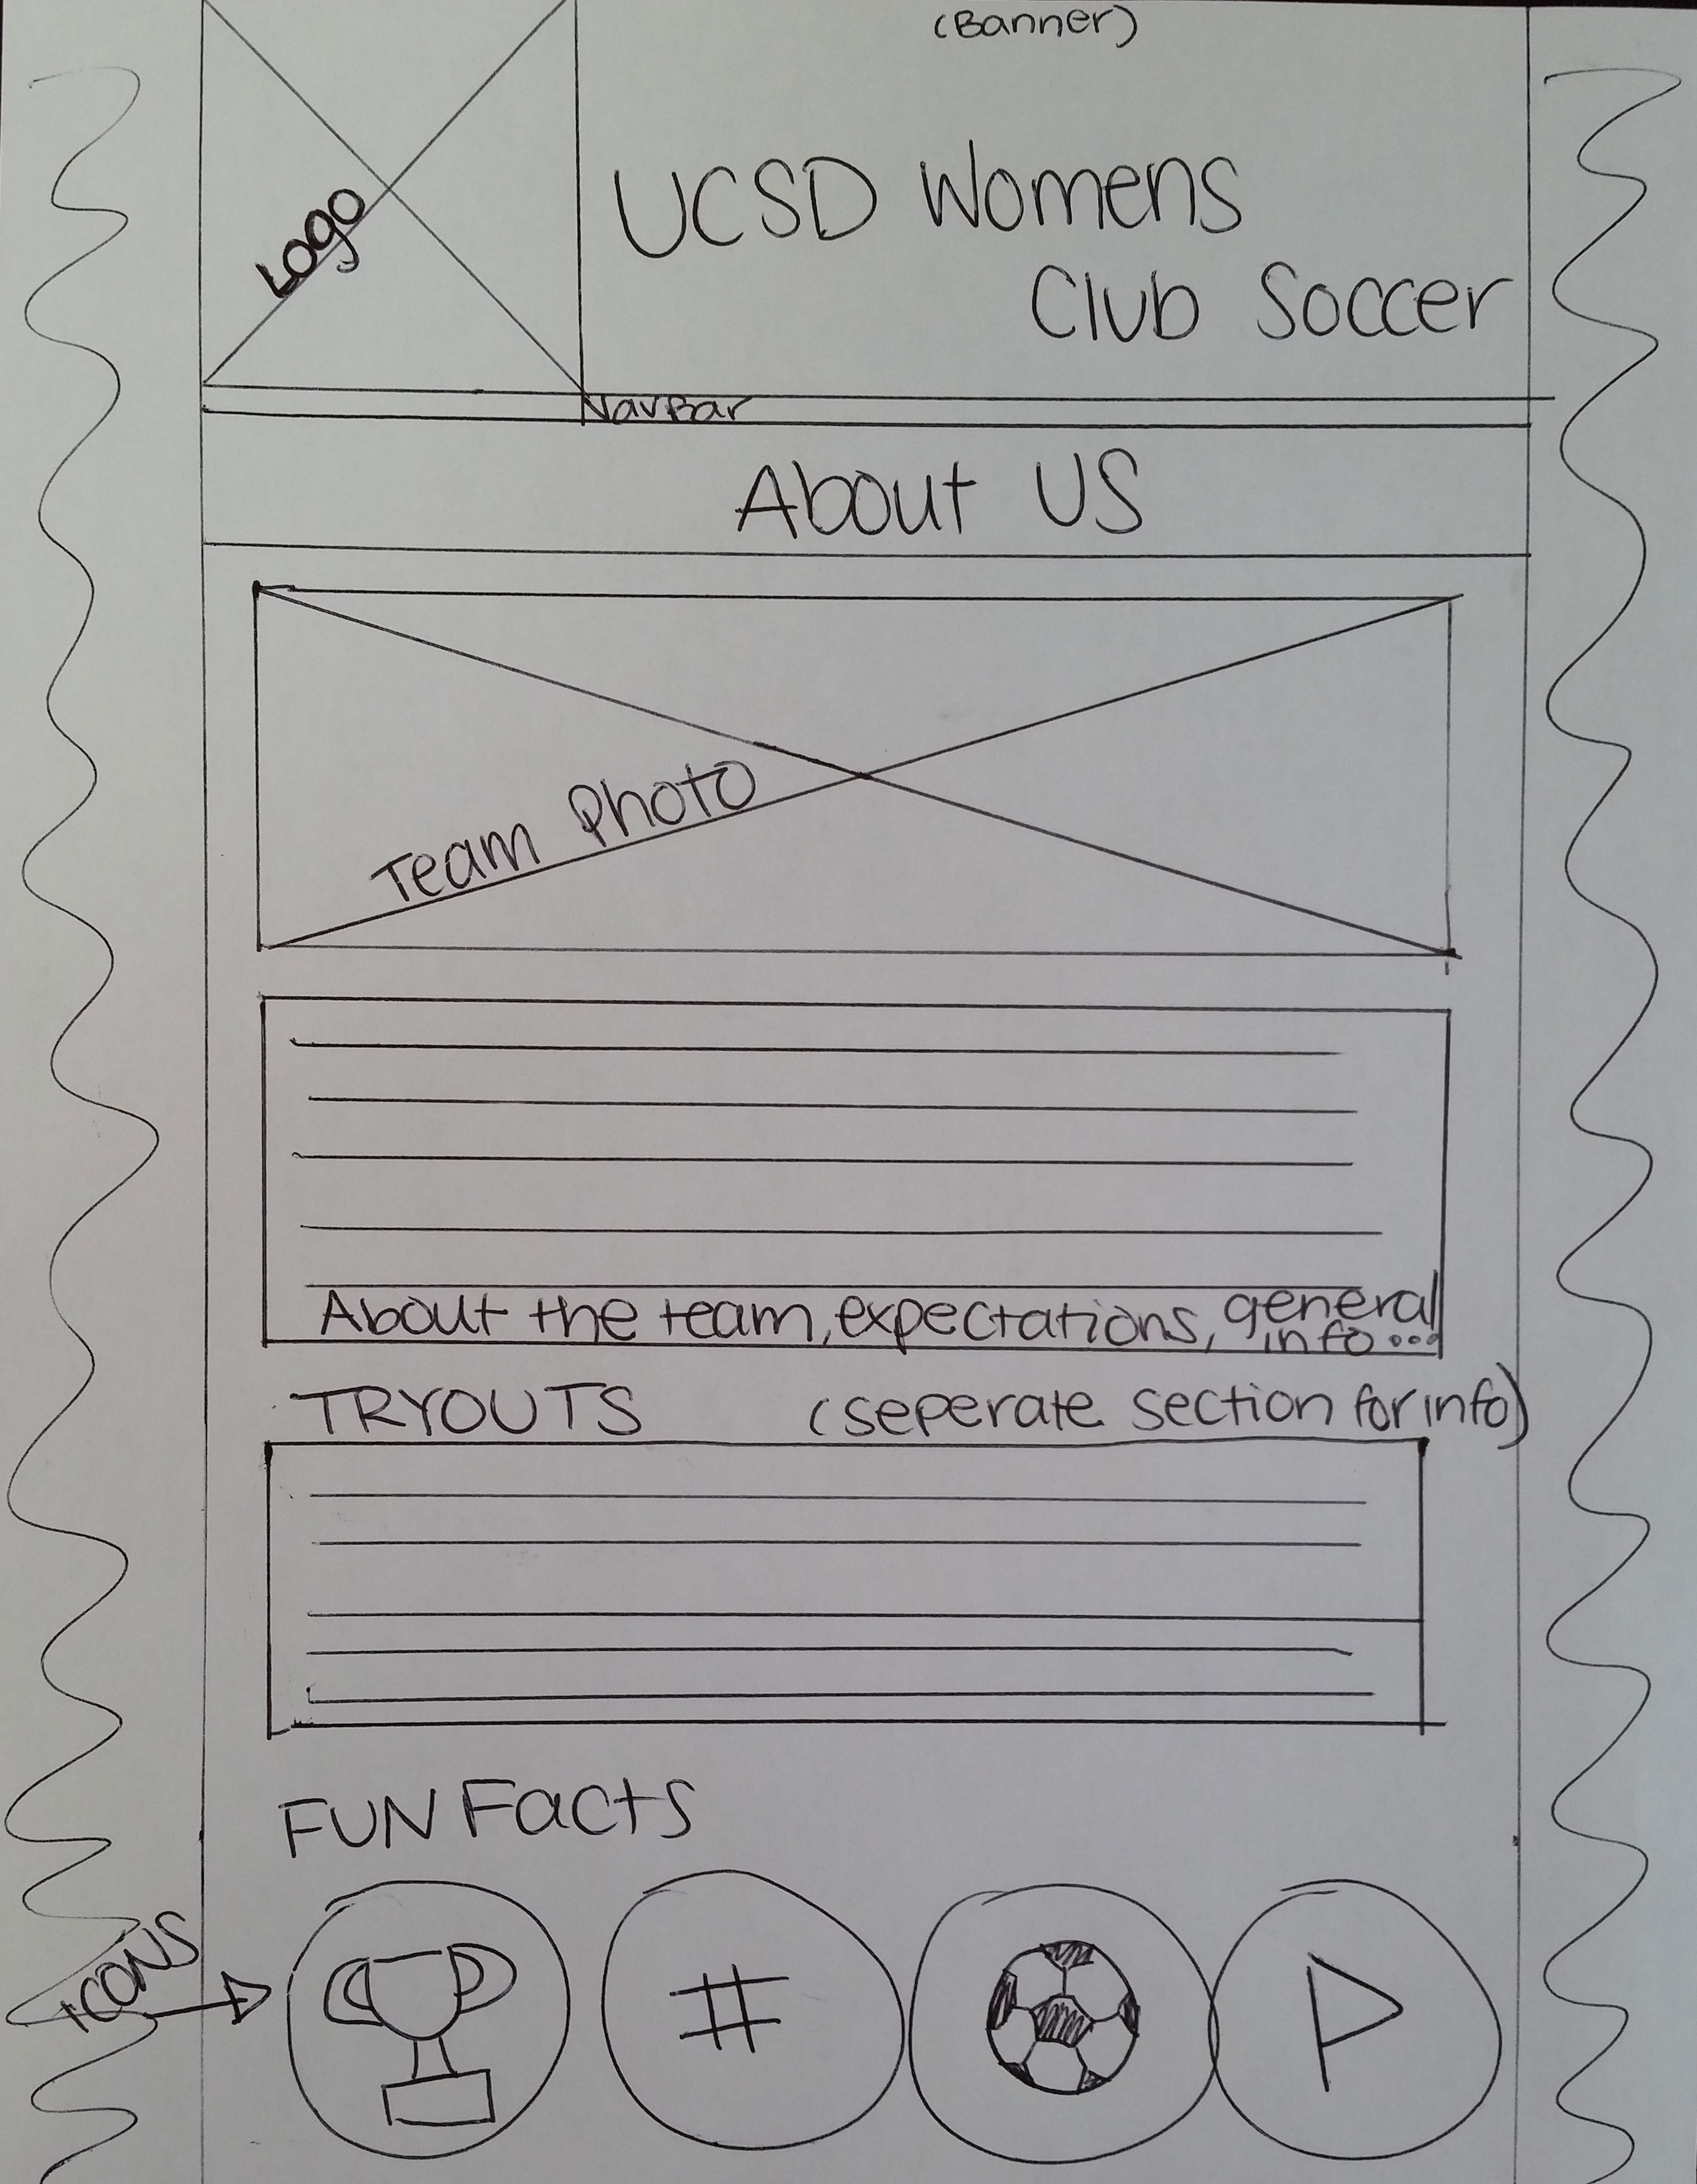 (Banner)
Logo
UCSD Womens
Club Soccer
NavBar
About US
Team Photo
About the team, expectations, general
info...
TRYOUTS (seperate section for info)
FUN Facts
ICONS
#